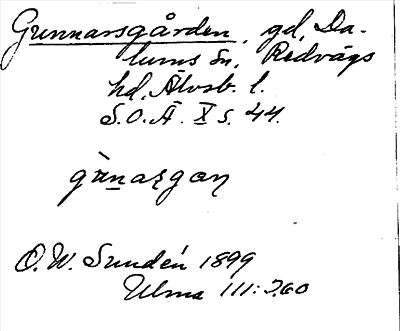 Gunnarsgården, gd, Da-
lums sn, Redvägs
hd, Älvsb. l.
S.O.Ä. X s. 44.
O.W. Sundén 1899
Ulma 111:260